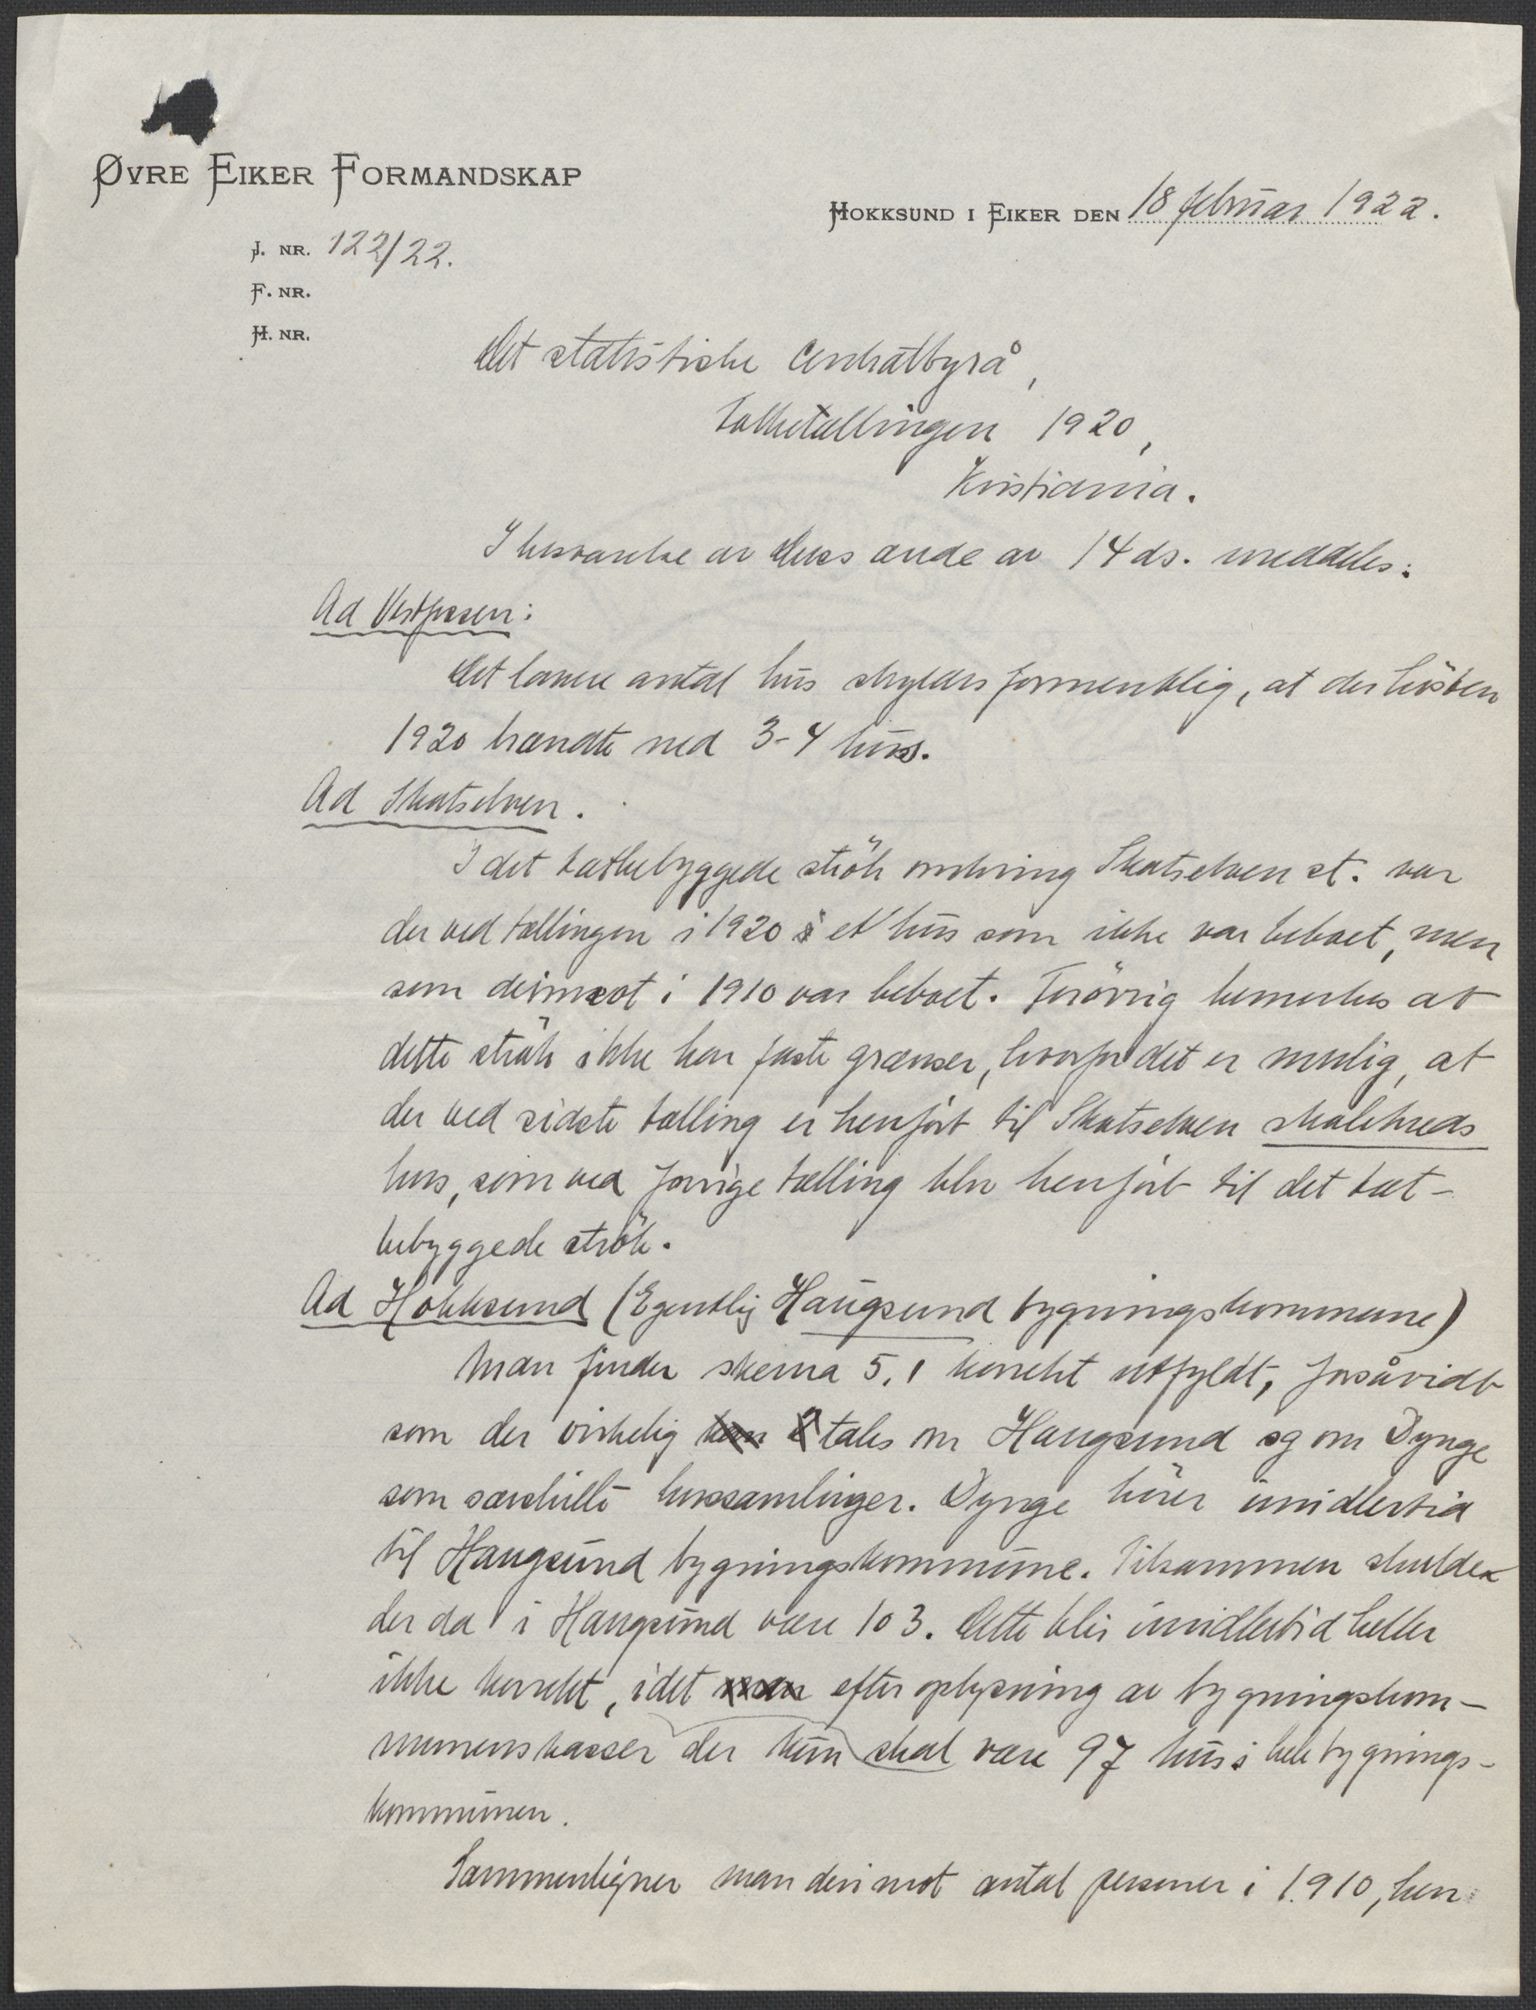 ØVRE EIKER FORMANDSKAP
HOKKSUND I EIKER DEN 18 februar 1922.
J. NR. 122/22.
F. NR.
H. NR.
Det statistiske Centralbyrå,
Folketællingen 1920,
Kristiania.
I besvarelse av Deres ærede av 14 ds. meddeles:
Ad Vestfossen:
Det lavere antal hus skyldes formentlig, at der høsten
1920 brændte ned 3-4 hus.
Ad Skotselven.
I det tætbebyggede strök omkring Skotselven st. var
der ved tællingen i 1920 et hus som ikke var beboet, men
som derimot i 1910 var beboet. Forövrig bemerkes at
dette strök ikke har faste grænser, hvorfor det er mulig, at
der ved sidste tælling er henfört til Skotselven skolekreds
hus, som ved forrige tælling blev henfört til det tæt-
bebyggede strök.
Ad Hokksund (Egentlig Haugsund bygningskommune)
Man finder skema 5.1 korrekt utfyldt, forsåvidt
som der virkelig kan tales om Haugsund og om Dynge
som særskilte hussamlinger. Dynge hörer imidlertid
til Haugsund bygningskommune. Tilsammen skulde
der da i Haugsund være 103. Dette blir imidlertid heller
ikke korrekt, idet man efter oplysning av bygningskom-
munens kasser der kun skal være 97 hus i hele bygnings-
kommunen.
Sammenligner man derimot antal personer i 1910, hen